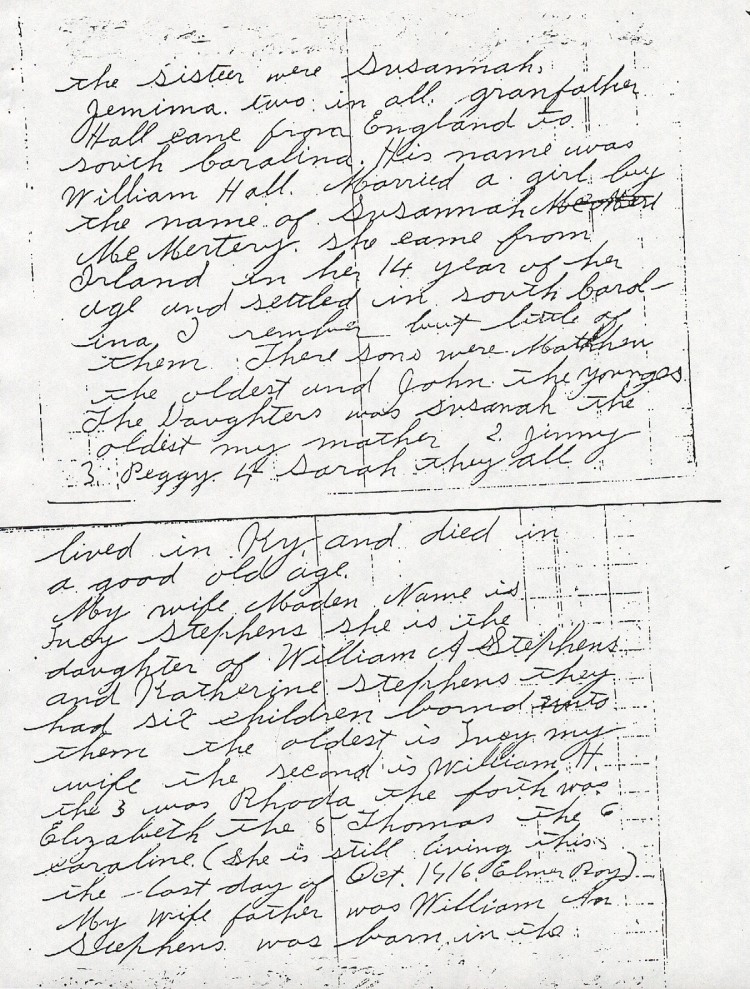 the sister were Susannah,
Jemima. two in all. granfather
Hall came from England to
south Caralina. His name was
William Hall. Married a girl by
the name of Susannah
Mc Mertery. she came from
Irland in her 14 year of her
age and settled in south Carol-
ina I rember but little of
them. There sons were Matthew
the oldest and John the younges
The Daughters was Susanah the
oldest my mather 2. Jinny
3. Peggy. 4 Sarah they all
lived in Ky. and died in
a good old age.
My wife Maden Name is
Lucy Stephens she is the
daughter of William A Stephens
and Katherine Stephens they
had six children bornd unto
them the oldest is Lucy my
wife the second is William H.
the 3 was Rhoda the forth was
Elizabeth the 5 Thomas the 6
caroline. (She is still living this
the last day of Oct. 1916. Elmer Roy)
My wife father was William An
Stephens was barn in the